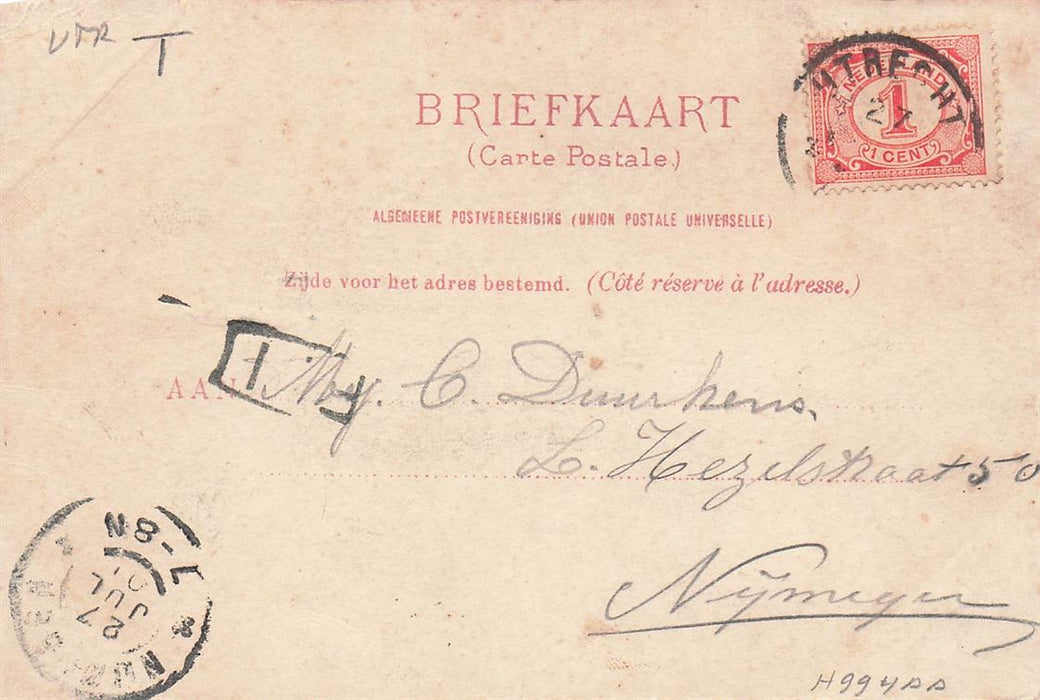 UTR T
UTRECHT
27
NEDERLAND
1
1 CENT
BRIEFKAART
(Carte Postale.)
ALGEMEENE POSTVEREENIGING (UNION POSTALE UNIVERSELLE)
Zijde voor het adres bestemd. (Côté réservé à l'adresse.)
AAN Mej. C. Duurkens.
L. Hezelstraat 50
Nijmegen
7-8N
27
JUL
H994AA